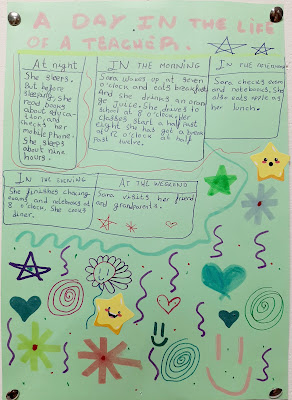 A DAY IN THE LIFE
OF A TEACHER.
At night
She sleeps.
But before
sleeping, she
read books
about educa-
tion and
checks her
mobile phone.
She sleeps
about nine
hours.
IN THE MORNING
Sara wakes up at seven
o'clock and eats breakfast.
And she drinks an oran-
ge juice. She drives to
school at 8 o'clock. Her
classes start a half past
eight. She has got a break
at 12 o'clock or at half
past twelve.
IN THE AFTERNOON
Sara checks exams
and notebooks. She
also eats apple as
her lunch.
IN THE EVENING
She finishes checing
exams and notebooks at
8 o'clock. She cooks
diner.
AT THE WEEKEND
Sara visits her friend
and grandparents.